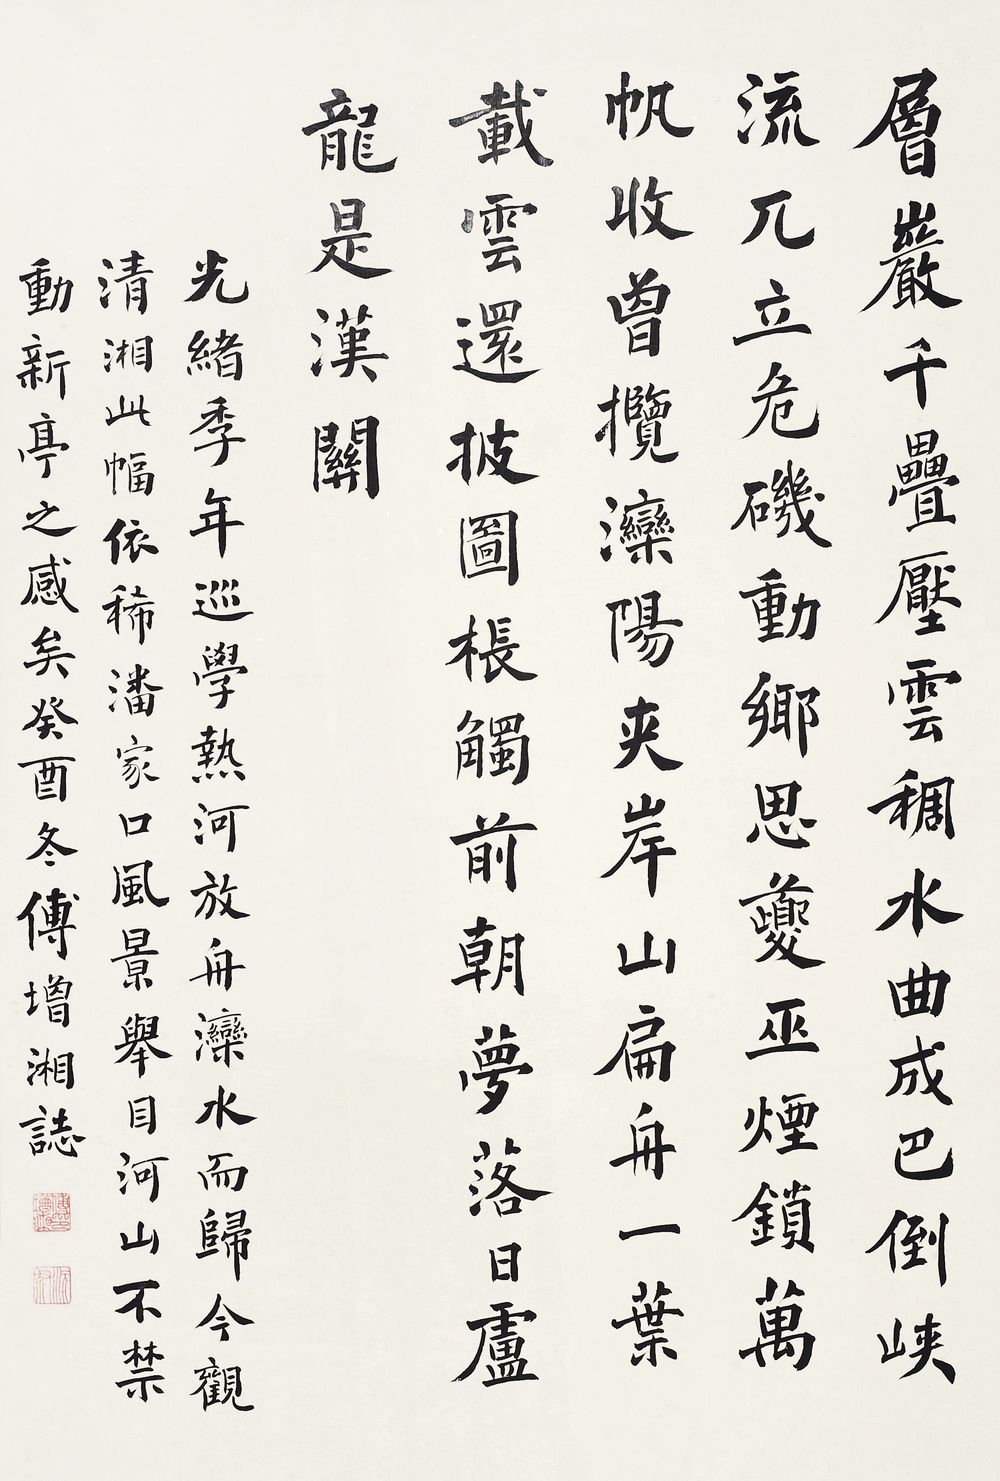 層巖千疊壓雲稠水曲成巴倒峽
流兀立危磯動鄉思夔巫煙鎖萬
帆收曾攬灤陽夾岸山扁舟一葉
載雲還披圖棖觸前朝夢落日盧
龍是漢關
光緒季年巡學熱河放舟灤水而歸今觀
清湘此幅依稀潘家口風景舉目河山不禁
動新亭之感矣癸酉冬傅增湘誌